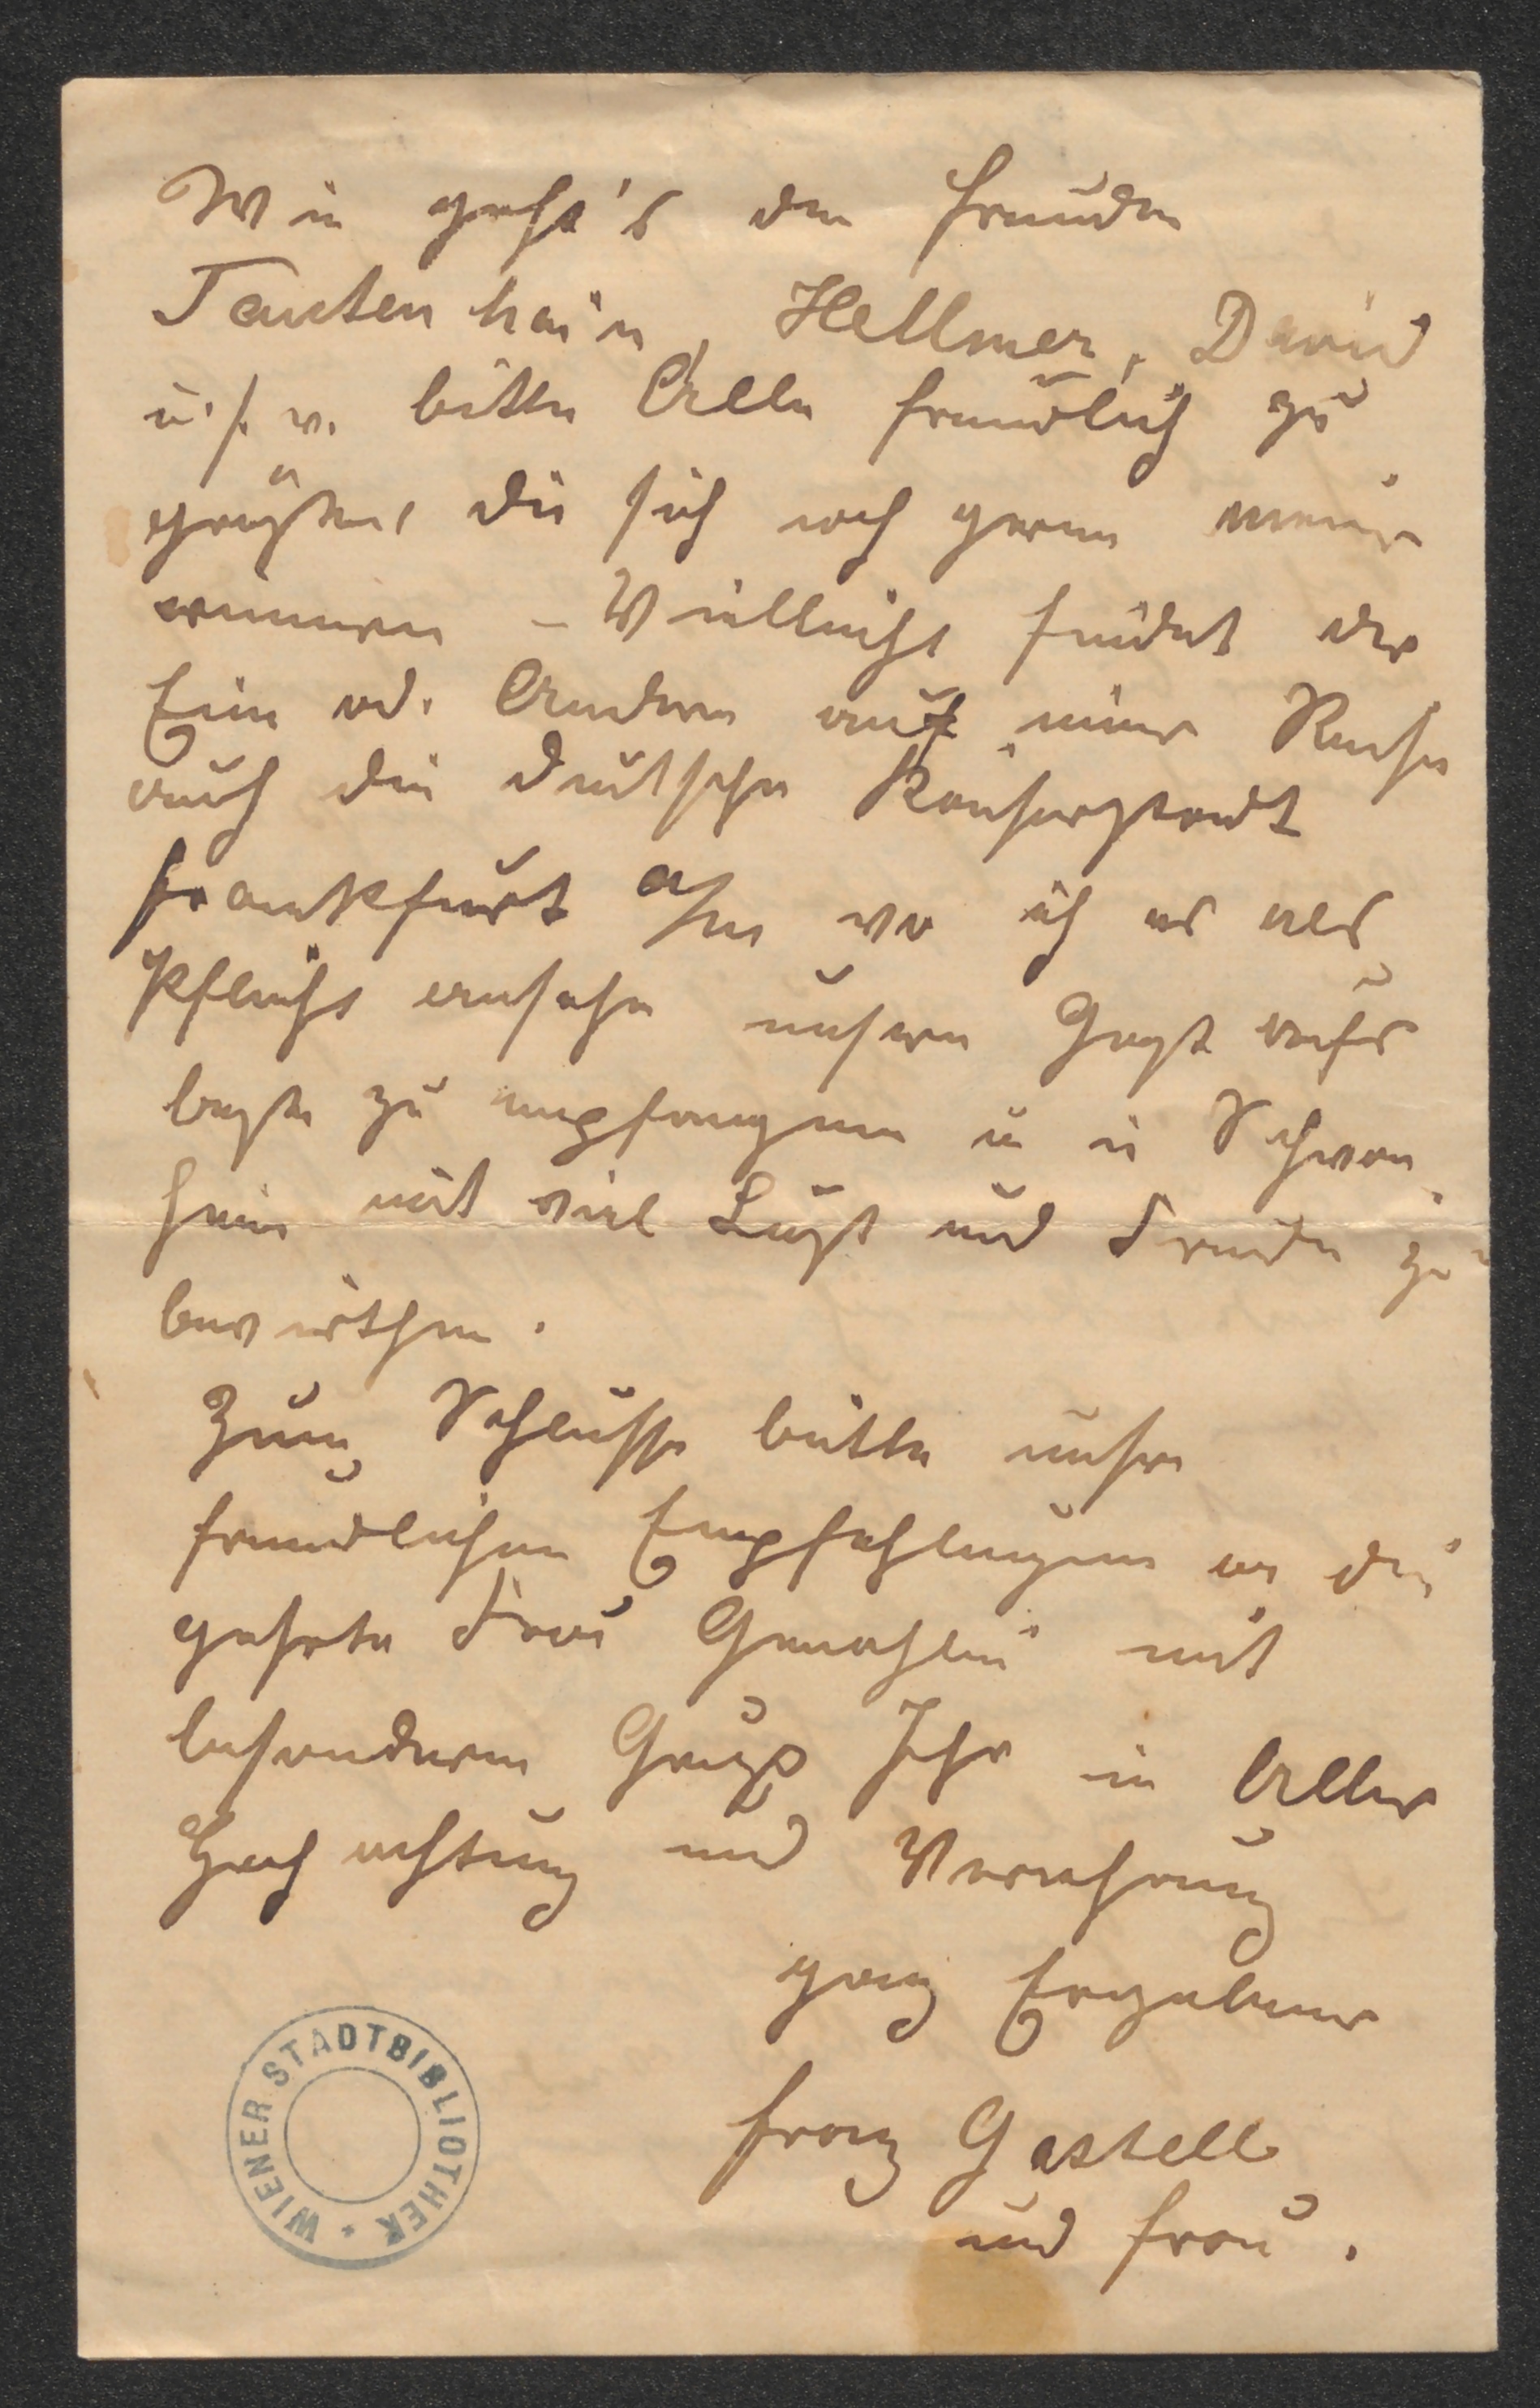 Wie geht's den Freunden
Tautenhain, Hellmer, David
u. s. w. bitte Alle freundlich zu
grüßen, die sich noch gerne meiner
erinnern – Vielleicht findet der
Eine od. Andere auf seiner Reise
auch die deutsche Kaiserstadt
Frankfurt a/m wo ich es als
Pflicht ansehe unsern Gast aufs
beste zu empfangen u in Schwan
heim mit viel Lust und Freude zu
bewirthen.
Zum Schlusse bitte unsere
freundlichen Empfehlungen an die
geehrte Frau Gemahlin mit
besonderem Gruß Ihr in Aller
Hochachtung und Verehrung
ganz Ergebener
Franz Gastell
und Frau.
WIENER STADTBIBLIOTHEK